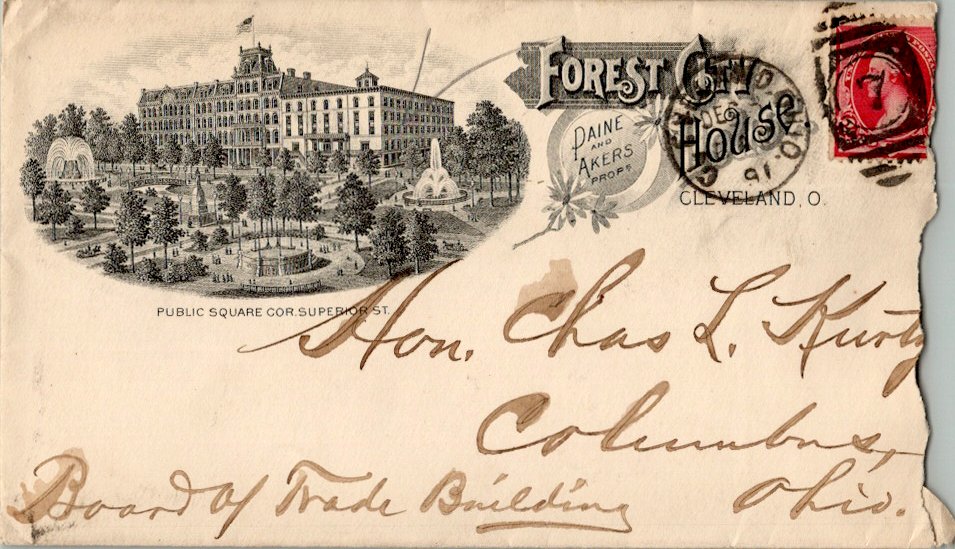 FOREST CITY
HOUSE
PAINE
AND
AKERS
PROPS
CLEVELAND, O.
PUBLIC SQUARE COR. SUPERIOR ST.
CLEVELAND, O.
DEC
91
7
Hon. Chas L. Kurtz
Columbus,
Ohio.
Board of Trade Building